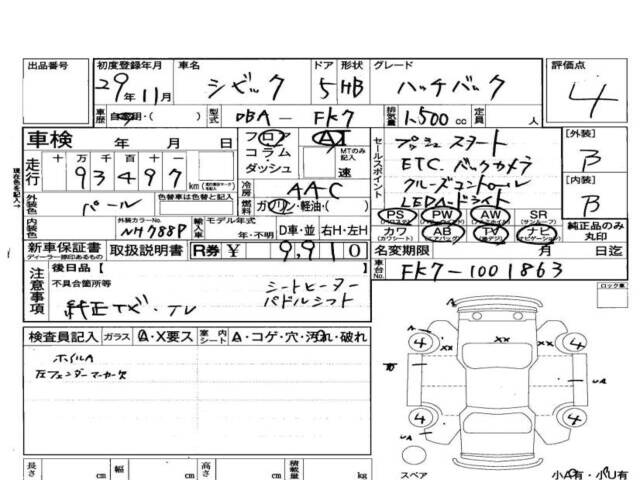 出品番号
初度登録年月
29年 11月
車名
シビック
ドア 形状
5 HB
グレード
ハッチバック
評価点
4
車歴 自家用・( )
型式 DBA - FK7
排気量 1.500 cc
定員 人
車検 年 月 日
フロア
コラム・
ダッシュ
AT
MTのみ記入
速
セールスポイント
プッシュスタート
ETC.バックカメラ
クルーズコントロール
LEDヘッドライト
[外装]
B
[内装]
B
現在色を記入→
走行
十 万 千 百 十 一
93497 km
冷房 AAC
外装色 パール
色替車は色替と記入
燃料 ガソリン・軽油・( )
PS PW AW SR
(パワステ) (パワーウィンドウ) (アルミホイル) (サンルーフ)
カワ AB TV ナビ
(カワシート) (エアバッグ) (アナ・地デジ) (ナビゲーション)
純正品のみ丸印
内装色
外装カラーNo.
NH788P
輸入車 モデル年式
年・不明
D車・並 右H・左H
新車保証書
ディーラー捺印あるもの
取扱説明書
R券 ¥ 9,910
名変期限 月 日迄
車台No. FK7-1001863
注意事項
後日品 [ ]
不具合箇所等
純正ナビ・TV
シートヒーター
パドルシフト
ロック車
検査員記入
ガラス A・X要ス
室内シート A・コゲ・穴・汚れ・破れ
ホイルA
左フェンダーマーカー欠
A
4 4
XX XX XX
UA
4 4
UA
スペア
小A有・小U有
長さ cm
幅 cm
高さ cm
積載量 kg